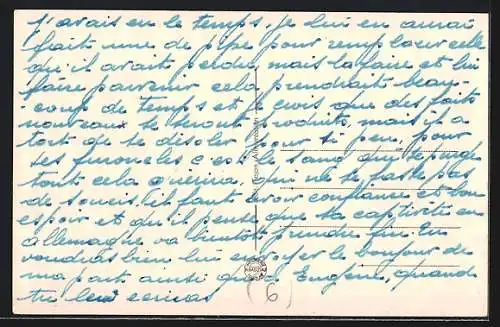 j'avais eu le temps, je lui en aurai
fait une de pipe pour remplacer celle
qu'il avait perdue, mais la faire et lui
faire parvenir cela prendrait beau-
coup de temps et je crois que des faits
nouveaux se seront produits, mais il a
tort de se désoler pour si peu, pour
ses furoncles c'est le sang qui se purge
tout cela guérira, qu'il ne se fasse pas
de soucis, il faut avoir confiance et bon
espoir et qu'il pense que sa captivité en
allemagne va bientôt prendre fin. Tu
voudras bien lui envoyer le bonjour de
ma part ainsi qu'à Eugène, quand
tu leur écriras
6